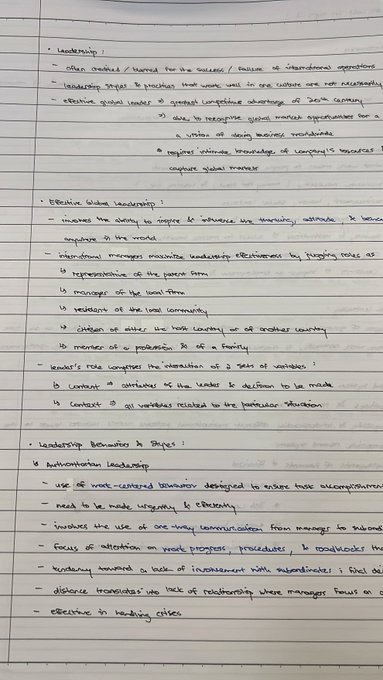 • Leadership :
- often credited / blamed for the success / failure of international operations
- leadership styles & practices that work well in one culture are not necessarily
- effective global leader ⇒ greatest competitive advantage of 20th century
⇒ able to recognise global market opportunities for a
a vision of doing business worldwide
* requires intimate knowledge of company's resources &
capture global markets
• Effective Global Leadership :
- involves the ability to inspire & influence the thinking, attitude, & behav
anywhere in the world
- international managers maximize leadership effectiveness by juggling roles as
↳ representative of the parent firm
↳ manager of the local firm
↳ resident of the local community
↳ citizen of either the host country or of another country
↳ member of a profession & of a family
- leader's role comprises the interaction of 2 sets of variables :
↳ content ⇒ attributes of the leader & decision to be made
↳ context ⇒ all variables related to the particular situation
• Leadership Behavior & Styles :
↳ Authoritarian Leadership
- use of work-centered behavior designed to ensure task accomplishment
- need to be made urgently & efficiently
- involves the use of one-way communication from manager to subord
- focus of attention on work progress, procedures, & roadblocks tha
- tendency toward a lack of involvement with subordinates ; final de
- distance translates into lack of relationship where managers focus on
- effective in handling crises